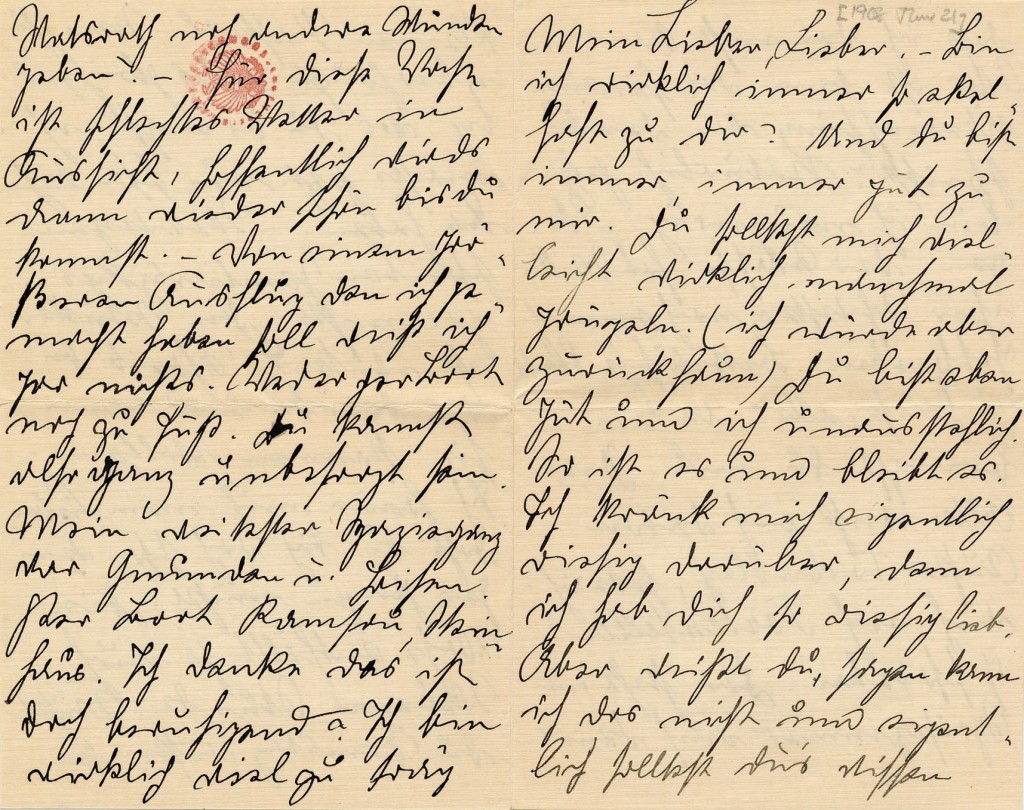 noch andere Wunden
geben? – Für diese Woche
ist schlechtes Wetter in
Aussicht, hoffentlich wirds
dann wieder schön bis du
kommst. – Von einem grö-
ßeren Ausflug den ich ge-
macht haben soll weiß ich
gar nichts. Weder per Boot
noch zu Fuß. Du kannst
also ganz unbesorgt sein.
Mein weitester Spaziergang
war Gmunden u.
Per Boot Ramsau, Stein-
haus. Ich denke das ist
doch beruhigend? Ich bin
wirklich viel zu träg
[1908 June 21?]
Mein Lieber Lieber, – Bin
ich wirklich immer so ekel-
haft zu dir? Und du bist
immer, immer gut zu
mir. Du solltest mich viel-
leicht wirklich manchmal
prügeln. (ich würde aber
zurückhaun) Du bist eben
gut und ich unausstehlich.
So ist es und bleibt es.
Ich kränk mich eigentlich
riesig darüber, denn
ich hab dich so riesig lieb.
Aber weißt du, sagen kann
ich das nicht und eigent-
lich solltest du's wissen